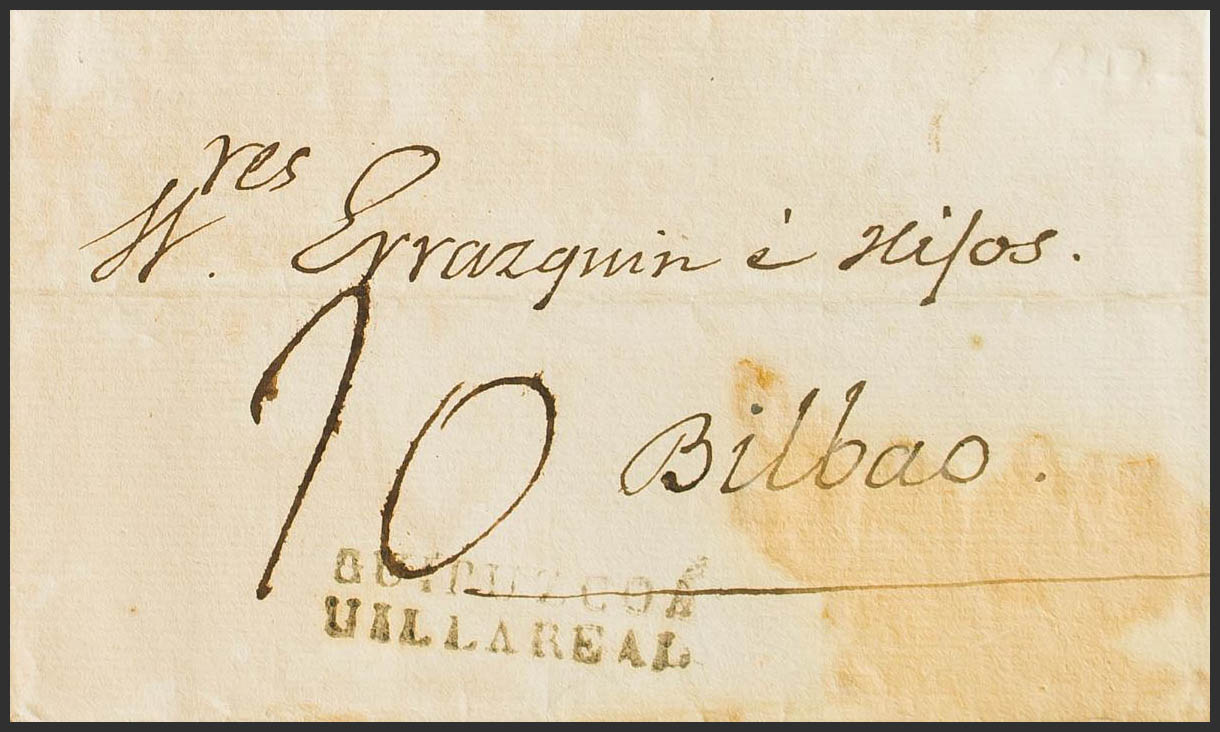 S.res Errazquin é Hijos.
10
Bilbao.
GUIPUZCOA
UILLAREAL